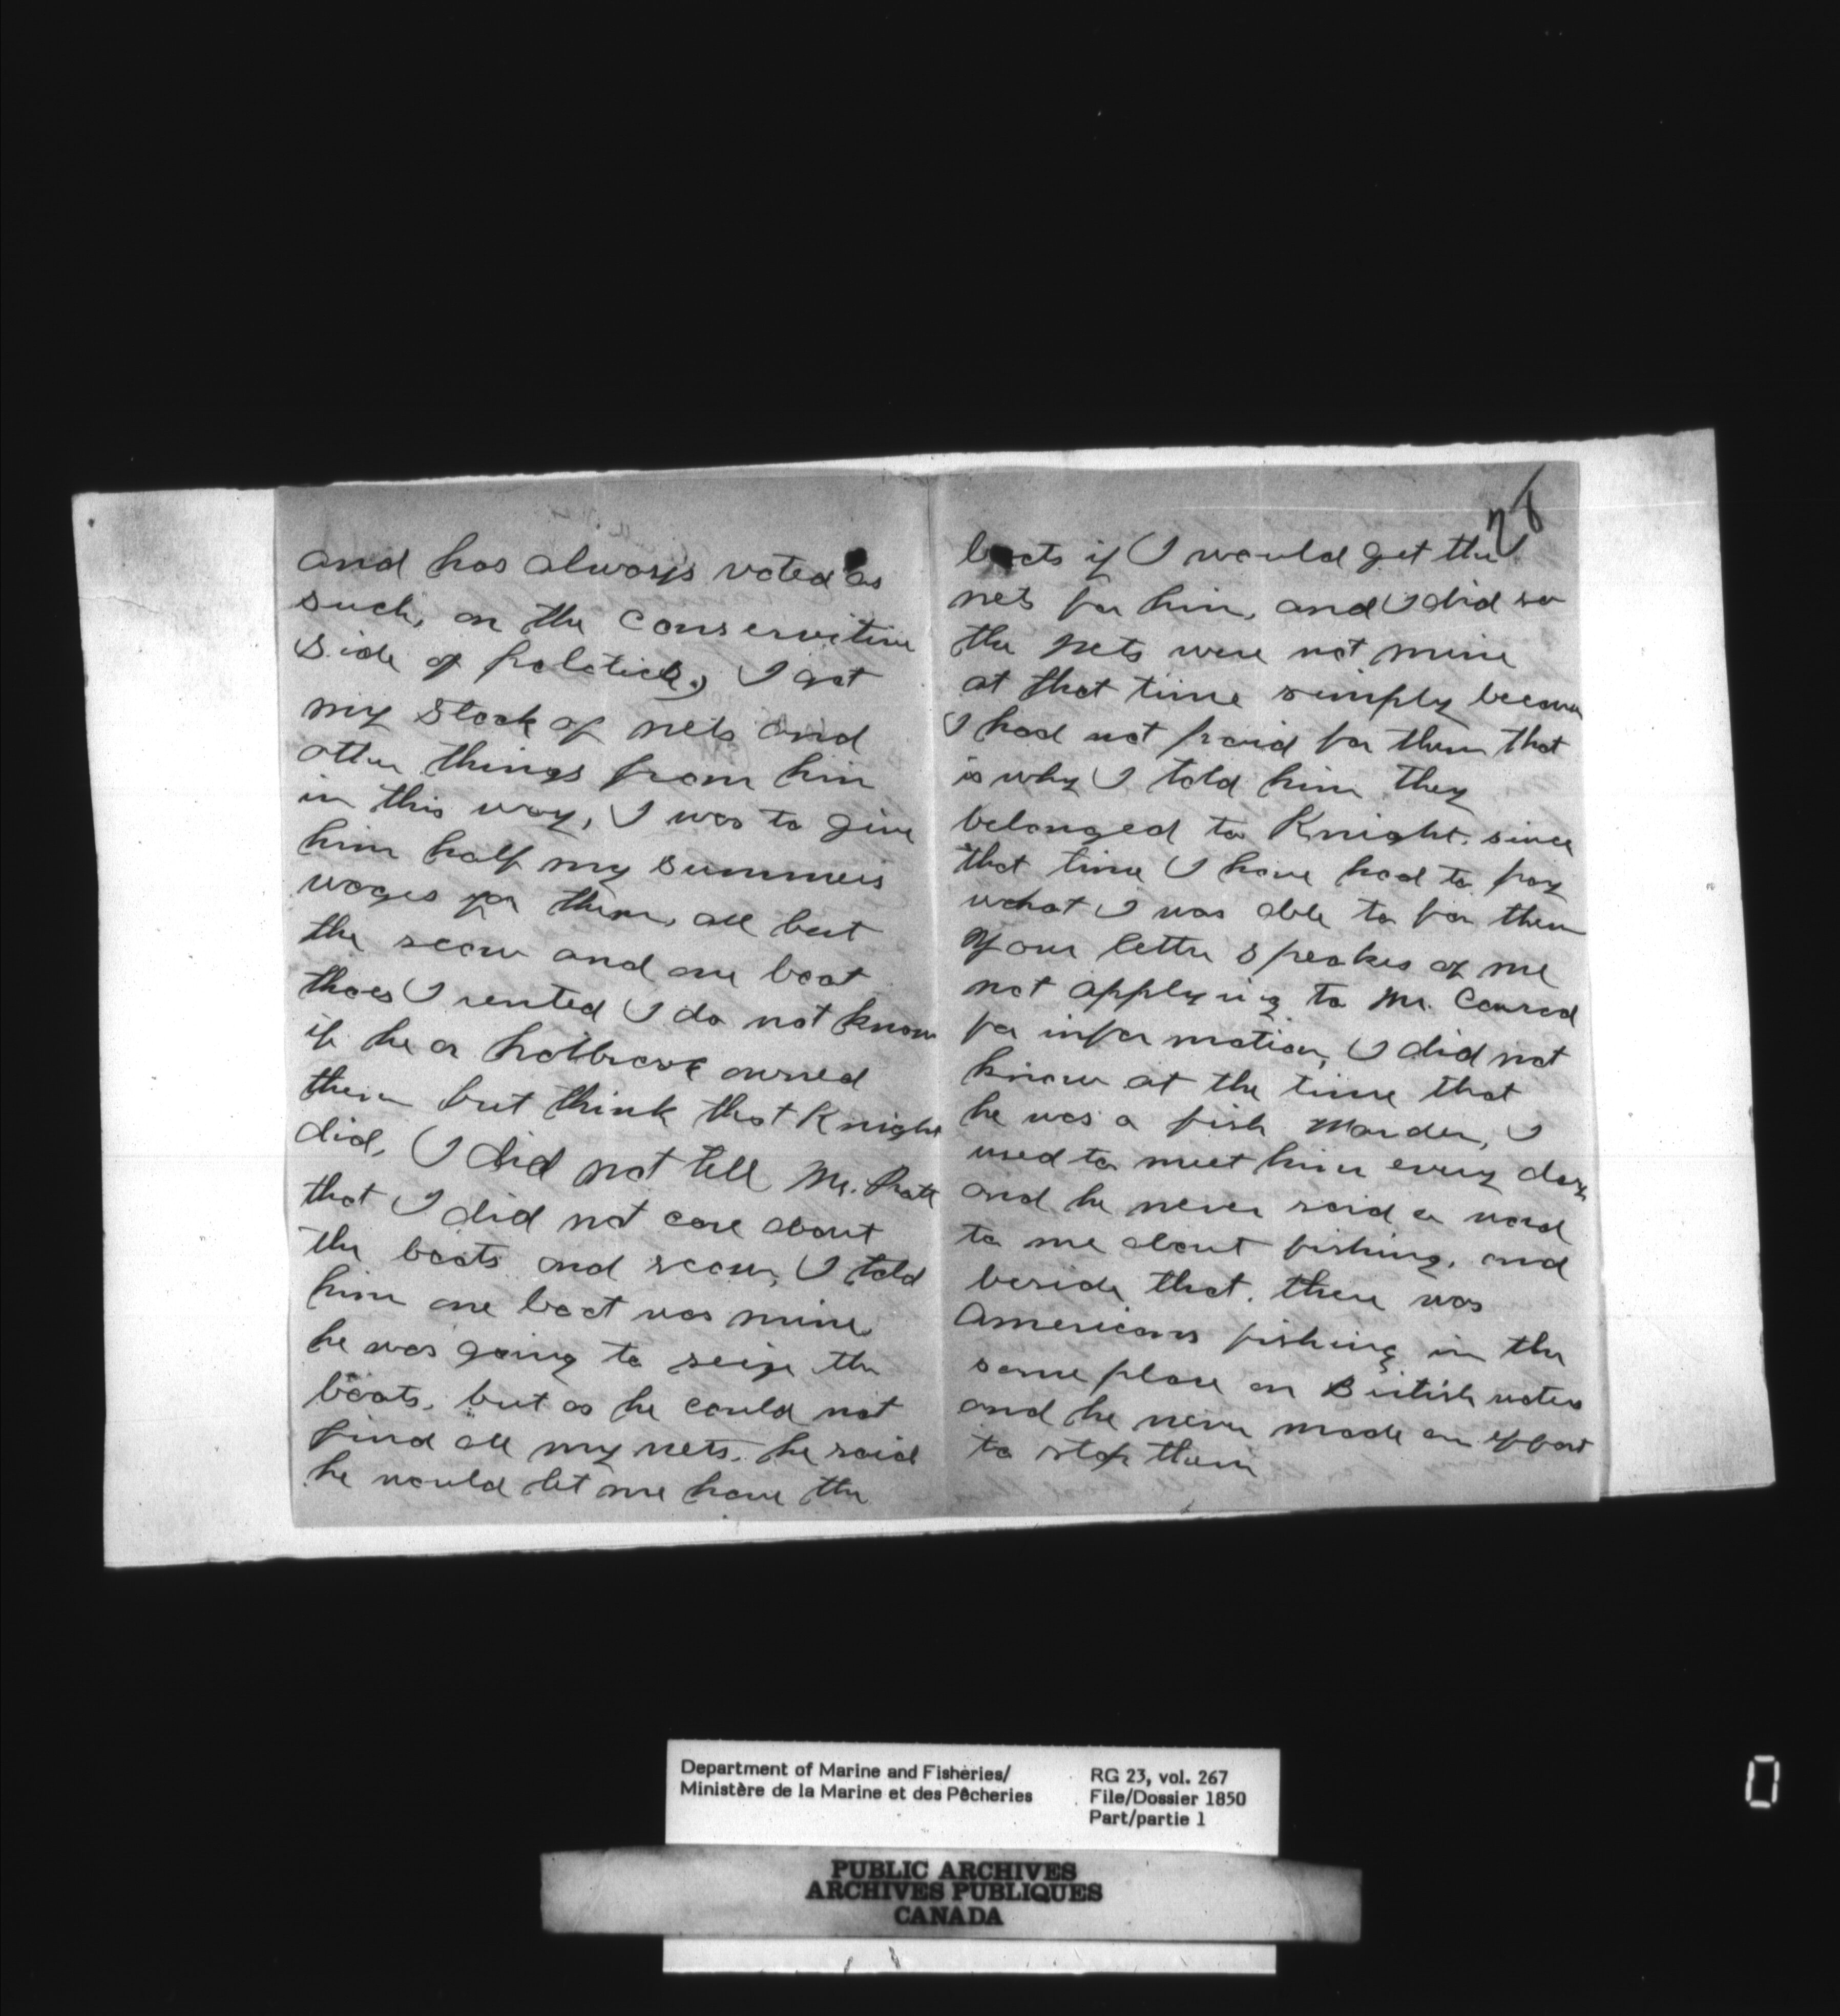 and has always voted as
such, on the Conservitive
Side of polotick, I got
my Stock of nets and
other things from him
in this way, I was to give
him half my summers
wages for them, all but
the scow and one boat
thoes I rented I do not know
if he or owned
them but think that Knight
did, I did not tell Mr. Pratt
that I did not care about
the boats and scow, I told
him one boat was mine
he was going to seize the
boats, but as he could not
find all my nets, he said
he would let me have the
boats if I would get the
nets for him, and I did so
the nets were not mine
at that time simply because
I had not paid for them that
is why I told him they
belonged to Knight. since
that time I have had to pay
what I was able to for them
Your letter speakes of me
not applying to Mr. Conrad
for information, I did not
know at the time that
he was a fish Warden, I
used to meet him every day
and he never said a word
to me about fishing, and
beside that, there was
Americans fishing in the
same place on British waters
and he never made an effort
to stop them
Department of Marine and Fisheries/
Ministère de la Marine et des Pêcheries
RG 23, vol. 267
File/Dossier 1850
Part/partie 1
PUBLIC ARCHIVES
ARCHIVES PUBLIQUES
CANADA